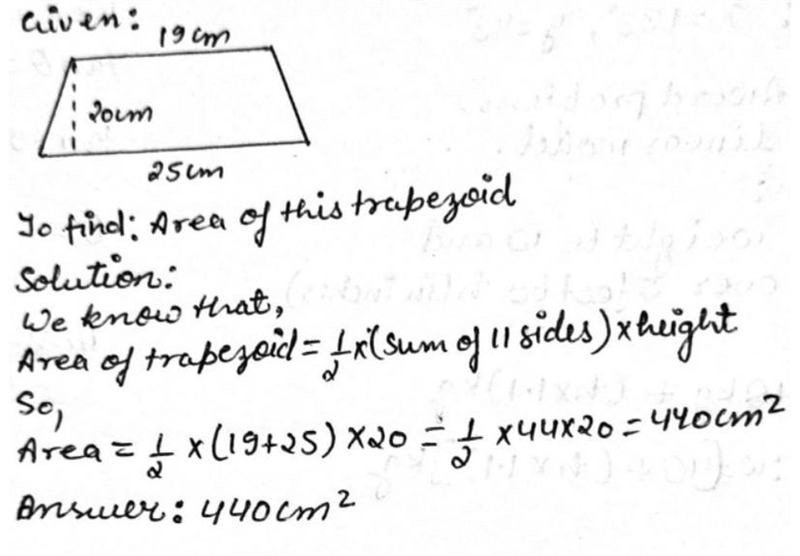 Given:
19cm
20cm
25cm
To find: Area of this trapezoid
Solution:
We know that,
Area of trapezoid = 1/2 x (sum of 11 sides) x height
So,
Area = 1/2 x (19+25) x 20 = 1/2 x 44 x 20 = 440cm²
Answer: 440cm²